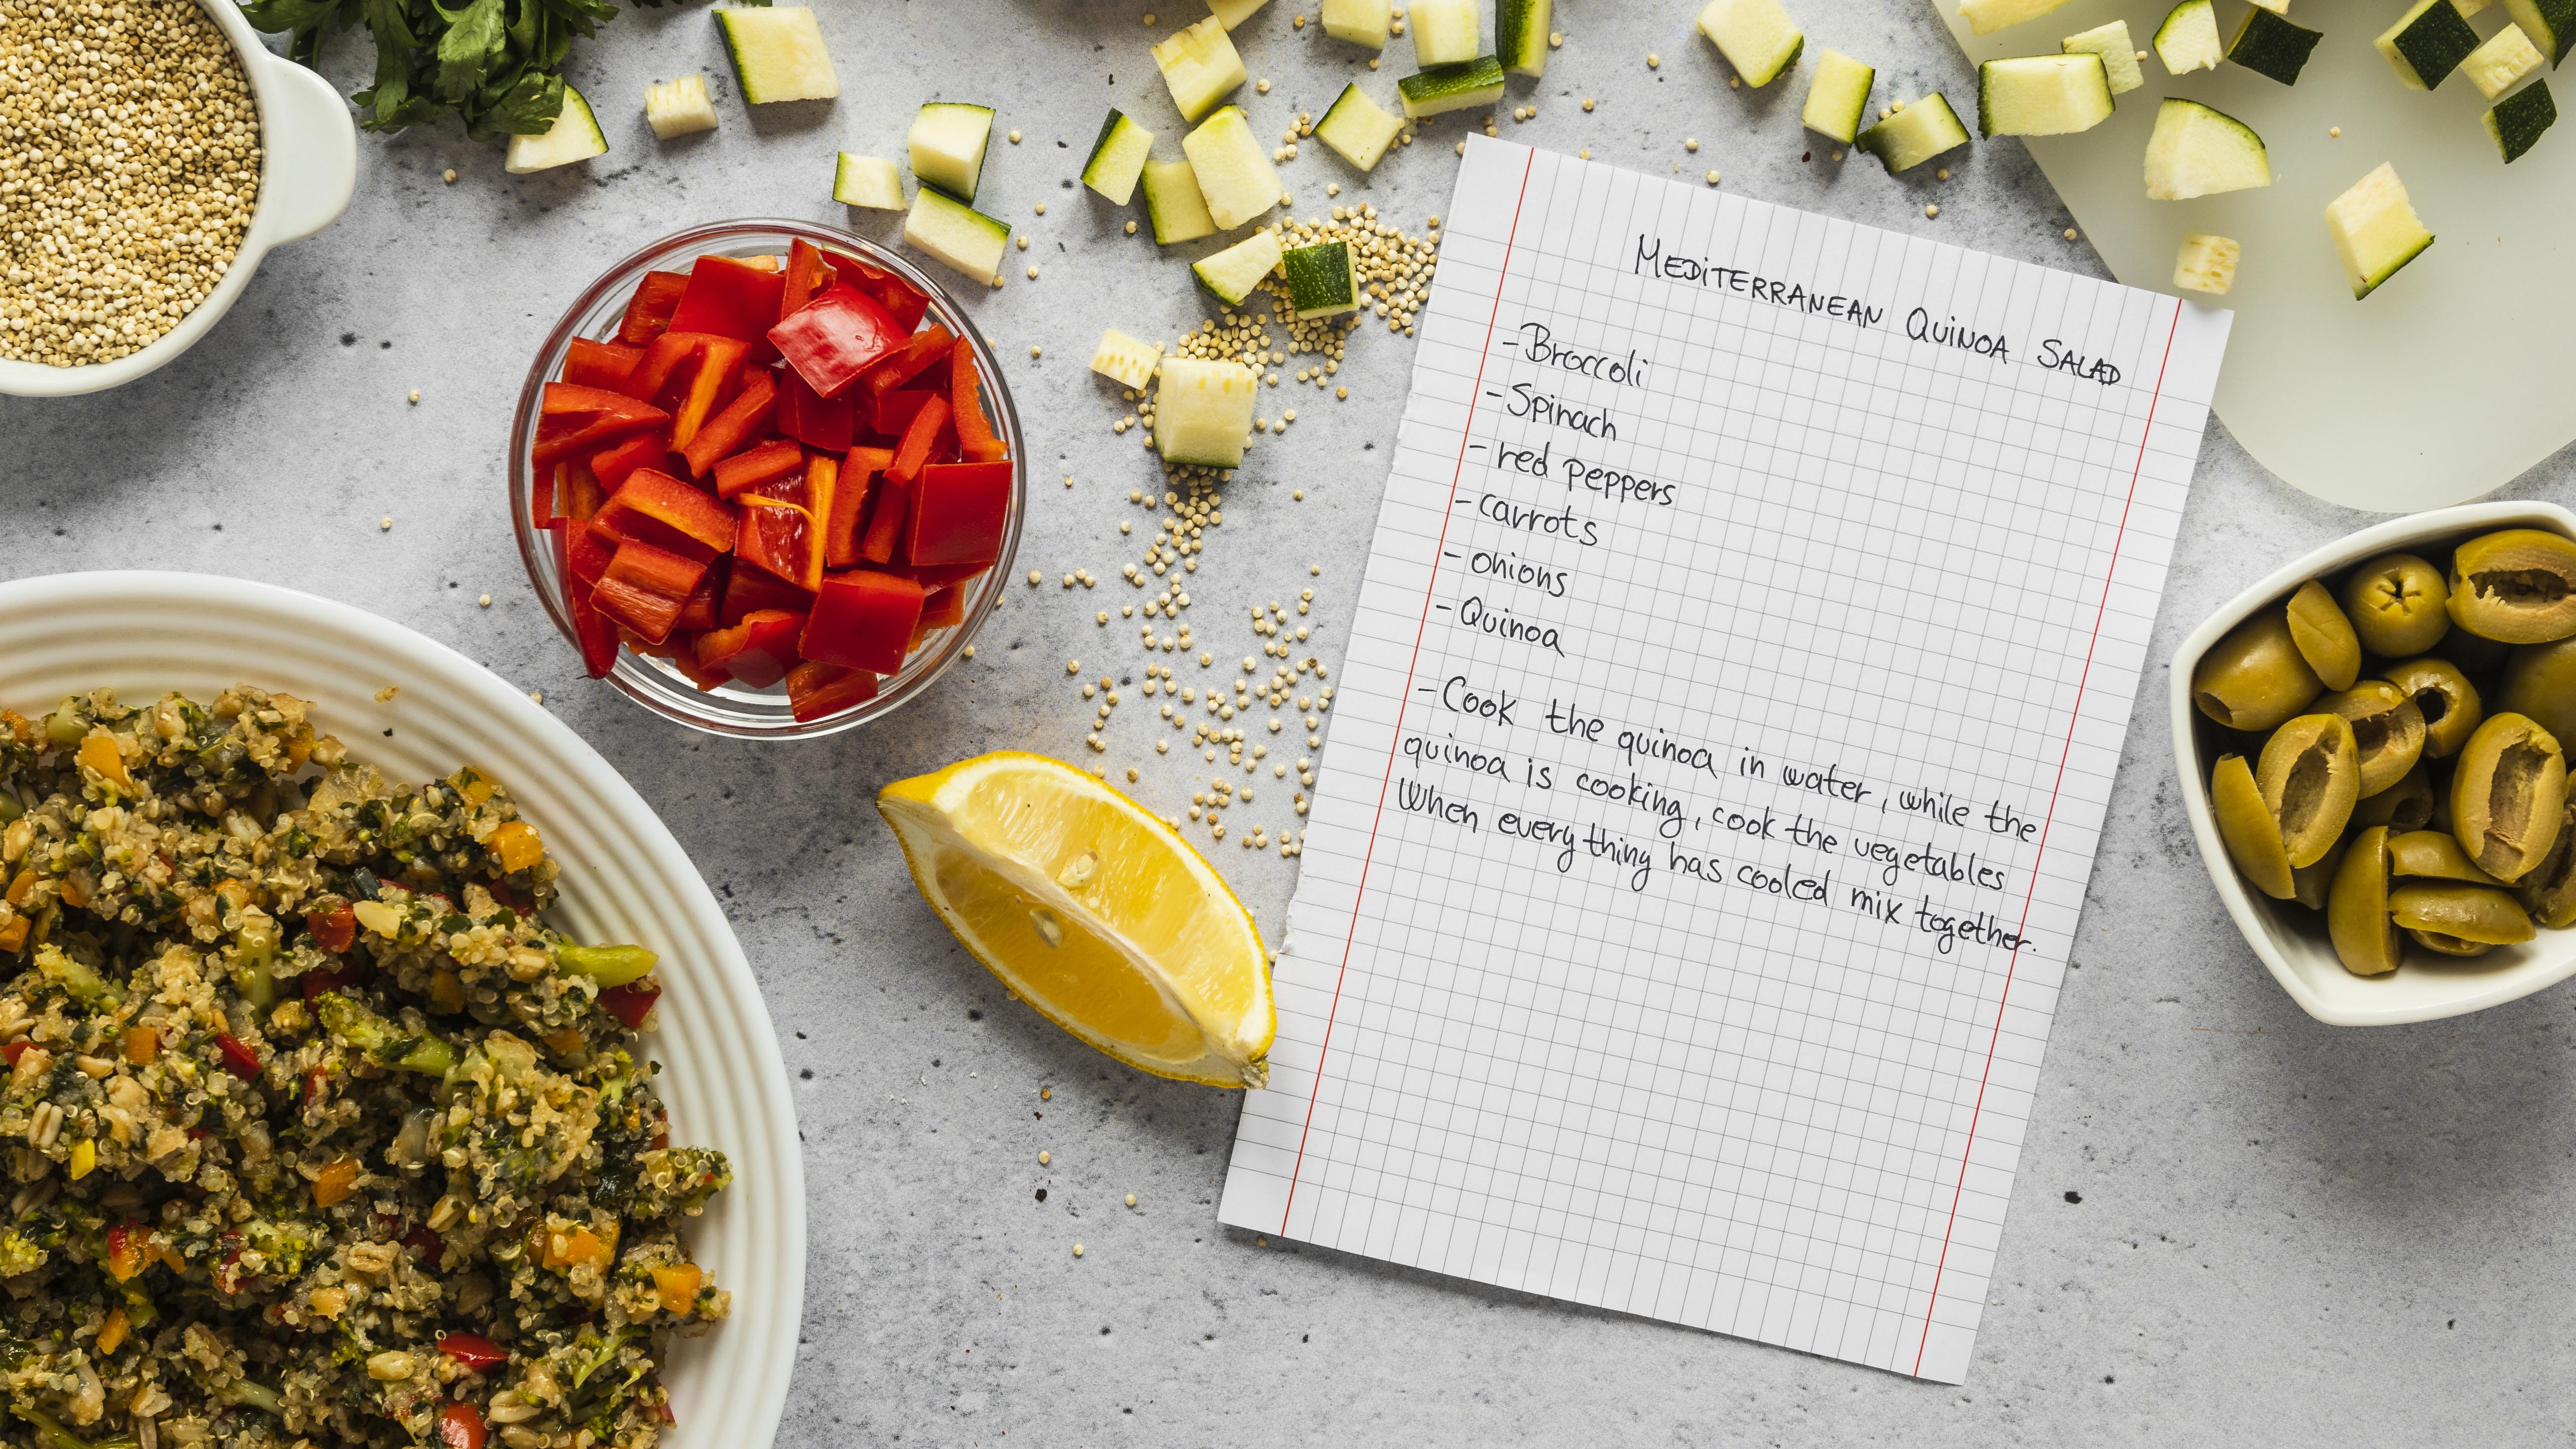 MEDITERRANEAN QUINOA SALAD
- Broccoli
- Spinach
- red peppers
- carrots
- onions
- Quinoa
- Cook the quinoa in water, while the
quinoa is cooking, cook the vegetables
When everything has cooled mix together.